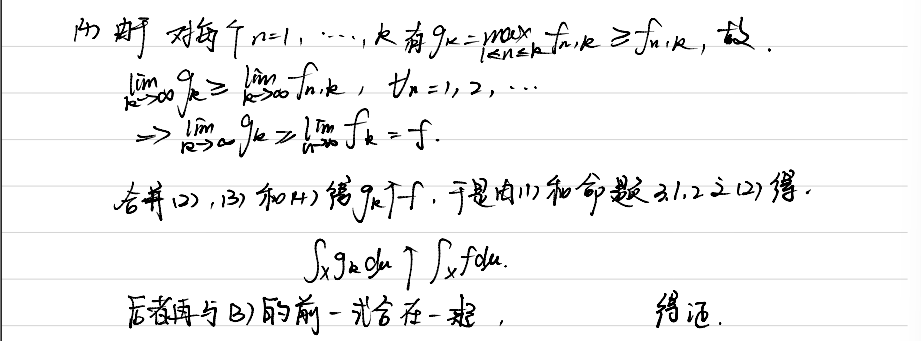 (4) 由于 对每个 n=1, ⋯, k 有 g_k = max_{1≤n≤k} f_{n,k} ≥ f_{n,k}, 故.
lim_{k→∞} g_k ≥ lim_{k→∞} f_{n,k}, ∀n=1, 2, ⋯
=> lim_{k→∞} g_k ≥ lim_{n→∞} f_k = f.
合并(2), (3) 和(4) 得 g_k↑f, 于是由(1) 和命题 3.1.2 之(2) 得.
∫_X g_k du ↑ ∫_X f du.
后者再与(3)的前一式合在一起, 得证.